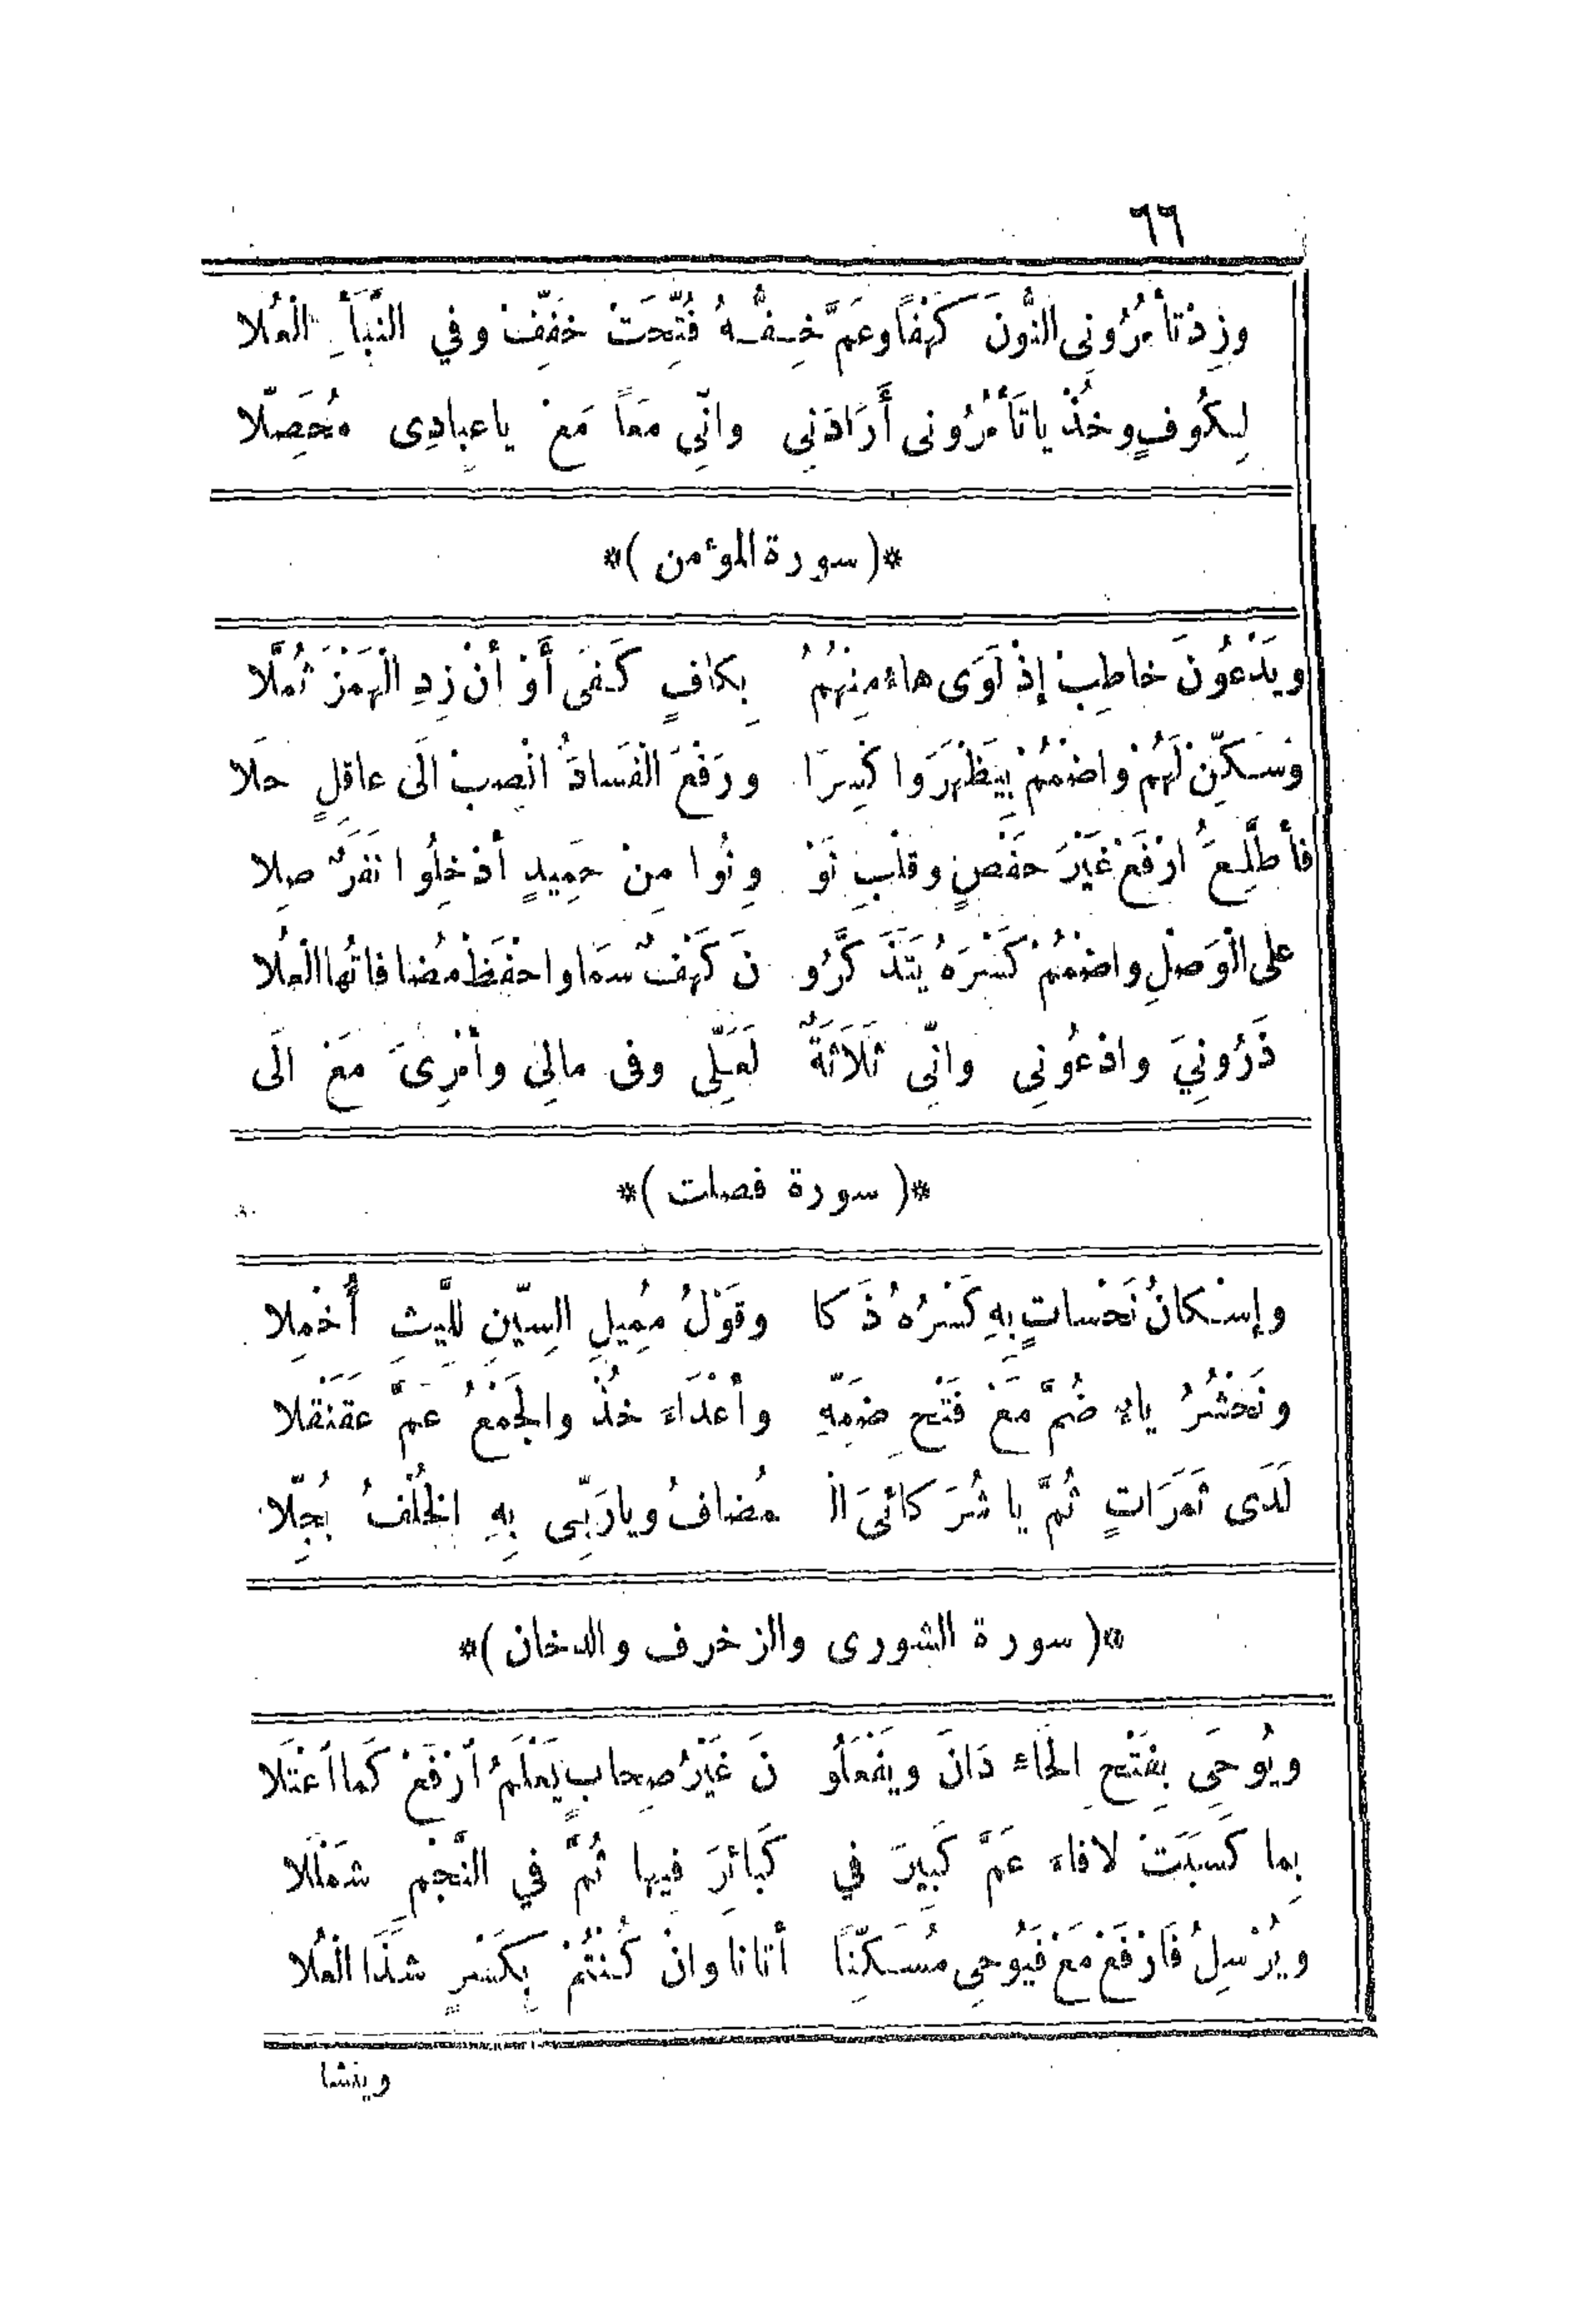 ٦٦
وزِدْ تأْمُرُونِى النُّونَ كَهْفًا وعَمَّ خِفُّهُ فُتِّحَتْ خَفِّفْ وفي النَّبَأِ الْعُلا
لِكُوفٍ وخُذْ يا تَأْمُرُونى أَرَادَنِى وانِّى مَعاً مَعْ ياعِبادِى مُحَصِّلا
*( سورة المؤمن )*
ويَدْعُونَ خاطِبْ إِذْ لَوَى هاءُ مِنْهُمُ بِكافٍ كَفَى أَوْ أَنْ زِدِ الْهَمْزَ ثُمَّلا
وَسَكِّنْ لَهُمْ واضْمُمْ بِيَظْهَرَ واكْسِرَا ورَفْعَ الْفَسادَ انْصِبْ الَى عاقِلٍ حَلا
فأَطَّلِعَ ارْفَعْ غَيْرَ حَفْصٍ وقلْبِ نَوْ وِنُوا مِنْ حَمِيدٍ أَدْخِلُوا نَفَرٌ صِلا
على الْوَصْلِ واضْمُمْ كَسْرَهُ يَتَذَكَّرُو نَ كَهْفٌ سَمَا واحْفَظْ مُضافاتُها الْعُلا
ذَرُونِيَ وادْعُونِى وانِّى ثَلَاثَةٌ لَعَلِّى وفى مالِى وأَمْرِىَ مَعْ الَى
*( سورة فصلت )*
وإسْكانُ نَحْساتٍ بِهِ كَسْرُهُ ذَكا وقَوْلُ مُمِيلِ السِّينِ للَّيْثِ أُخْمِلا
ونَحْشُرُ ياءٌ ضُمَّ مَعْ فَتْحِ ضَمِّهِ وأَعْدَاءَ خُذْ والجَمْعُ عَمَّ عَقَنْقلا
لَدَى ثَمَرَاتٍ ثُمَّ يا شُرَكائىَ الْ مُضافُ ويا رَبِّى بِهِ الخُلْفُ بُجِّلا
*( سورة الشورى والزخرف والدخان )*
ويُوحَى بِفَتْحِ الحَاءِ دَانَ ويَفْعَلُو نَ غَيْرُ صِحابٍ يَعْلَمُ ارْفَعْ كَما اعْتَلا
بِما كَسَبَتْ لا فاءَ عَمَّ كَبِيرَ في كَبائِرَ فِيها ثُمَّ في النَّجْمِ شَمْلَلا
ويُرْسِلُ فَارْفَعْ مَعْ فَيُوحِى مُسَكِّنًا أتانا وانْ كُنْتُمْ بِكَسْرٍ شَذَا الْعُلا
وينشا